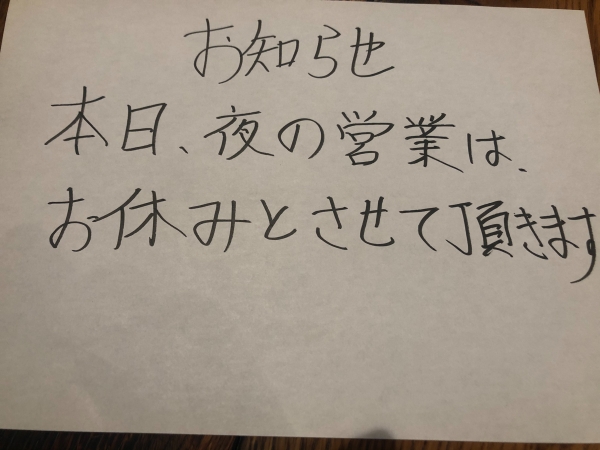 お知らせ
本日、夜の営業は、
お休みとさせて頂きます